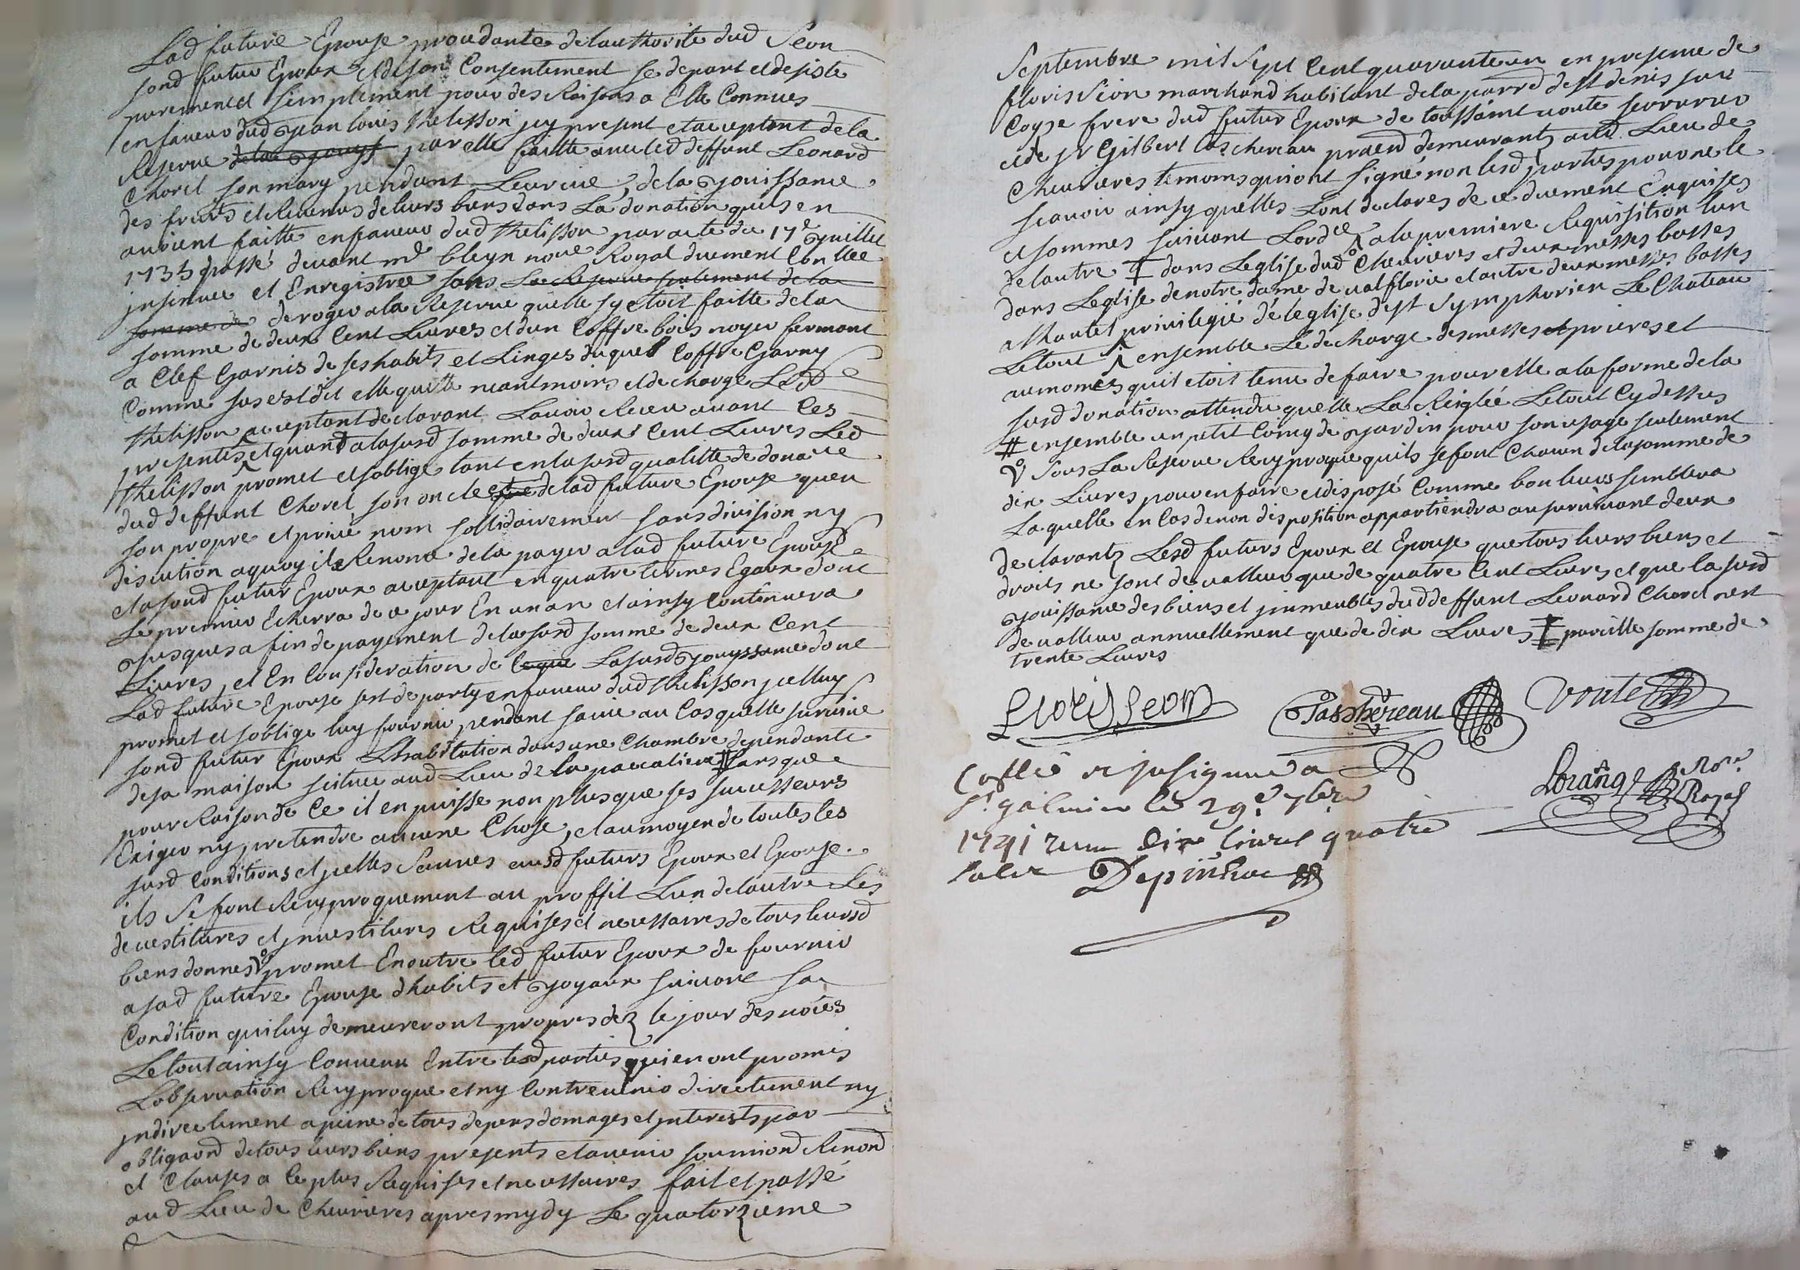 Lad future Epouse procedante de lauthorite dud Seon
sond futur Epoux et de son Consentement se depart et desiste
purement et simplement pour des Raisons a Elle Connues
en faveur dud Jean louis thelisson jcy present et acceptant de la
Reserve par elle faitte avec led deffunt Leonard
Chorel son mary pendant Leur vie, de la jouissance
des fruits et Revenus de leurs biens dans La donation quils en
avoient faitte en faveur dud thelisson par acte du 17e Juillet
1735 passé devant me bleyn nore Royal duement Conllee
jnsinuee et Enregistree sans La Reserve seulement de la
somme de deroger a la Reserve quelle sy etoit faitte de la
somme de deux Cent Livres et dun Coffre bois noyer fermant
a Clef Garnis de ses habits et Linges duquel Coffre Garny
Comme sus est dit elle quitte neantmoins et decharge Led
thelisson acceptant declarant Lavoir Receu avant Ces
presentes, et quand a la susd somme de deux Cent Livres Led
thelisson promet et soblige tant en la susd quallitte de donat.re
dud deffunt Chorel son oncle de lad future Epouse quen
son propre et privé nom sollidairement sans division ny
discution a quoy il Renonce de la payer a lad future Epouse
et a sond futur Epoux acceptant en quatre termes Egaux dont
Le premier Echerra de ce jour En un an et ainsy Continuera
Jusques a fin de payement de la susd somme de deux Cent
Livres, et En Consideration de La susd jouyssance dont
Lad future Epouse sest departy en faveur dud thelisson jcelluy
promet et soblige luy fournir pendant sa vie au Cas quelle survive
sond futur Epoux Lhabitation dans une Chambre dependante
de sa maison scituee aud Lieu de la pacaliere # sans que
pour Raison de Ce il en puisse non plus que ses successeurs
Exiger ny pretendre aucune Chose, et au moyen de toutes les
susd Conditions et jcelles Sauves ausd futurs Epoux et Epouse
ils se font Recyproquement au proffit Lun de lautre Les
devestitures et jnvestitures Requises et necessaires de tous leursd
biens donnes promet En outre led futur Epoux de fournir
a sad future Epouse dhabits et joyaux suivant sa
Condition qui luy demeureront propres dez le jour des noces
Le tout ainsy Convenu Entre lesd parties qui en ont promis
Lobservation Recyproque et ny Contrevenir directement ny
jndirectement a peine de tous depens domages et jnterests par
obligaond de tous leurs biens presents et avenir soumiond Renond
et Clauses a Ce plus Requises et necessaires fait et passé
aud Lieu de Chevrieres apres mydy Le quatorzieme
Septembre mil Sept Cent quarante un en presence de
floris Séon marchand habitant de la parre de st denis sur
Coyse frere dud futur Epoux de toussaint voute serrurier
et de sr Gilbert Paschereau praend demeurants aud Lieu de
Chevrieres temoins qui ont signé non lesd parties pour ne le
scavoir ainsy quelles Lont declares de ce duement Enquises
et sommes suivant Lordce a la premiere Requisition lun
de lautre dans Leglise dud Chevrieres et deux messes basses
dans Leglise de notre dame de valflorie et autre deux messes basses
a lhautel privilegié de leglise de st Symphorien Le Chateau
Le tout ensemble Le decharge des messes et prieres et
aumones quil etoit tenu de faire pour elle a la forme de la
susd donation attendu quelle La Reiglée Le tout Cy dessus
# ensemble un ptit Coing de jardin pour son usage seulement
Sous La Reserve Recyproque quils se font Chacun de la somme de
dix Livres pour en faire et disposé Comme bon leurs semblera
Laquelle en Cas de non disposition appartiendra au survivant deux
declarants Lesd futurs Epoux et Epouse que tous leurs biens et
droits ne sont de valleur que de quatre Cent Livres et que la susd
jouissance des biens et jmmeubles dud deffunt Leonard Chorel nest
de valleur annuellement que de dix Livres pareille somme de
trente Livres
floris Seon
Paschereau
voute
Lorange
Nore
Royal
Collé et jnsignué a
St galmier le 29e 7bre
1741 receu dix livres quatre
sols
Depinhac